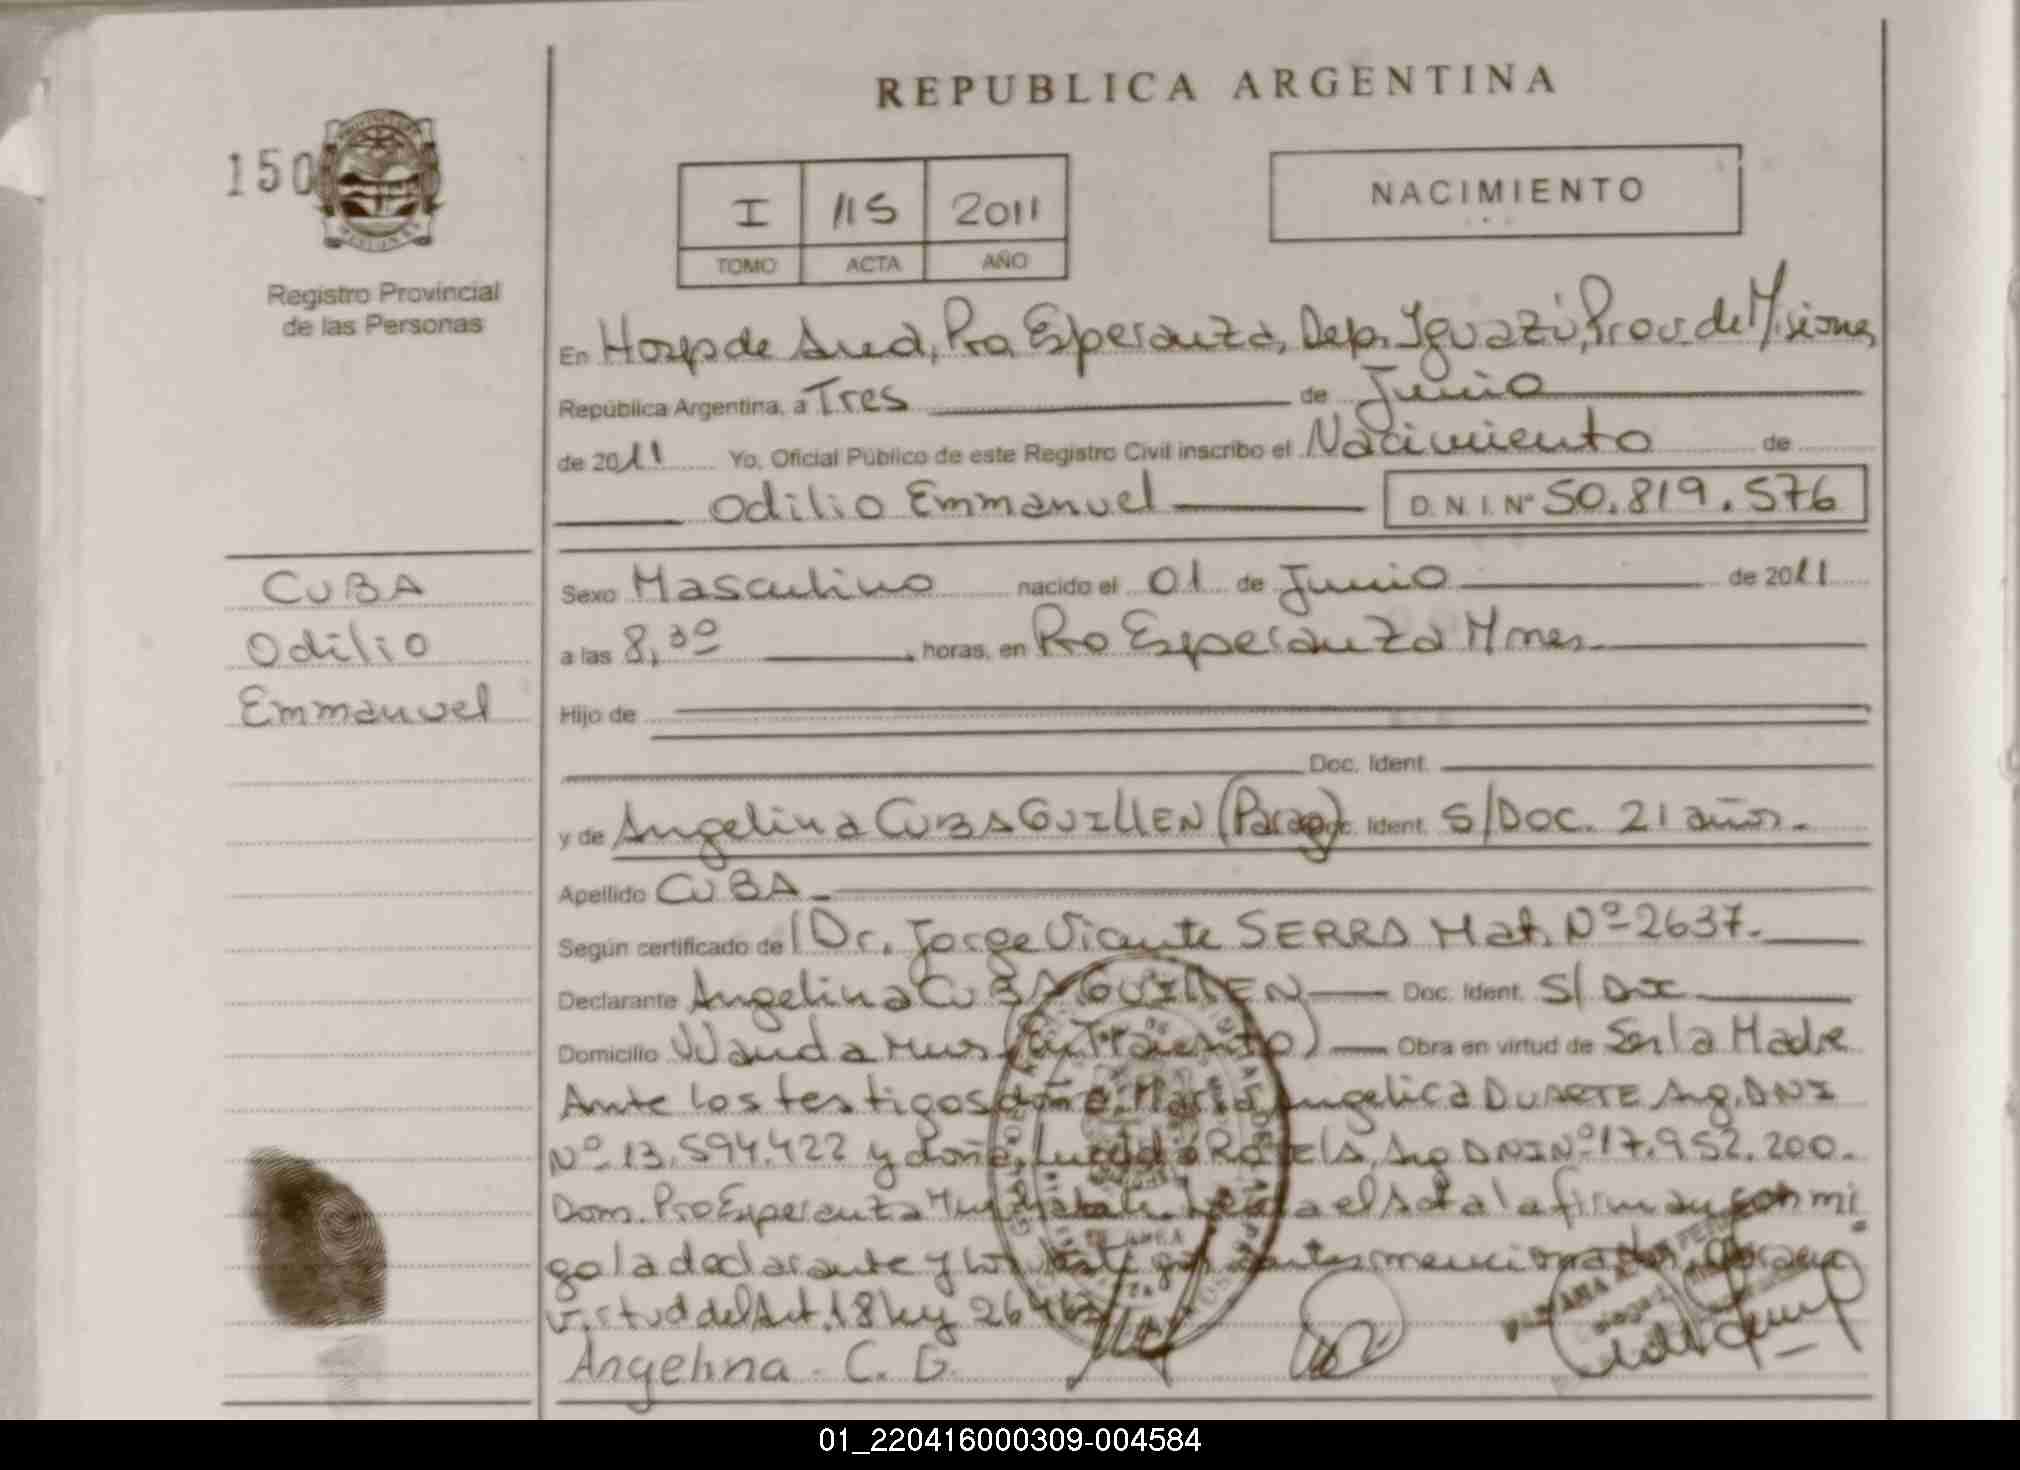 REPUBLICA ARGENTINA
150
Registro Provincial
de las Personas
I 115 2011
TOMO ACTA AÑO
NACIMIENTO
En Hosp de Area, Pto Esperanza, Dep. Iguazú, Prov. de Misiones
República Argentina, a Tres de Junio
de 2011 Yo, Oficial Público de este Registro Civil inscribo el Nacimiento de
Odilio Emmanuel D.N.I. Nº 50.819.576
CUBA
Odilio
Emmanuel
Sexo Masculino nacido el 01 de Junio de 2011
a las 8,30 horas, en Pto Esperanza Mnes
Hijo de
Doc. Ident.
y de Angelina CUBA GUILLEN (Parag) Ident. S/DOC. 21 años.
Apellido CUBA
Según certificado de Dr. Jorge Vicente SERRA Mat. Nº 2637.
Declarante Angelina CUBA GUILLEN Doc. Ident. S/Doc
Domicilio Wanda Mnes Obra en virtud de Ser la Madre
Ante los testigos doña María Angelica DUARTE Arg. DNI
Nº 13.594.422 y doña Arg DNI Nº 17.952.200.
Dom. Pto Esperanza el Acta la firman conmi
go la declarante y los testigos antes mencionados,
virtud del Art. 18 ley
Angelina. C. G.
01_220416000309-004584